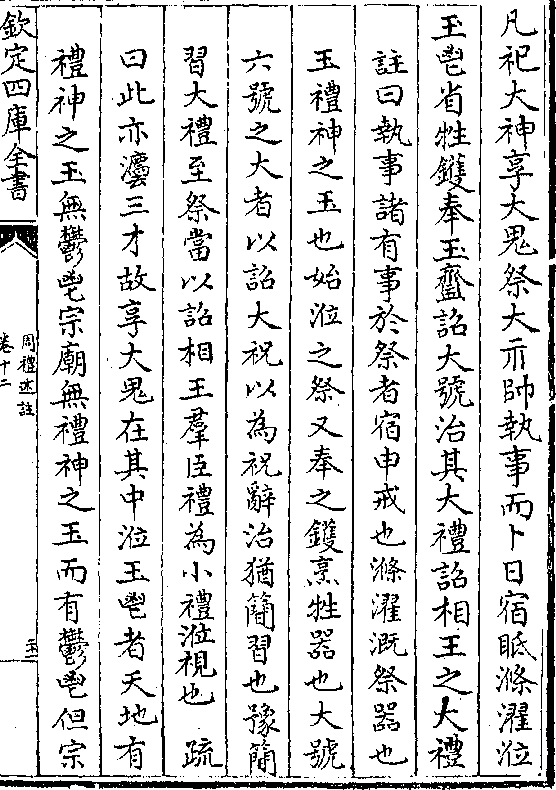 凡祀大神享大鬼祭大示帥執事而卜日宿眂滌濯涖
玉鬯省牲鑊奉玉齍詔大號治其大禮詔相王之大禮
註曰執事諸有事於祭者宿申戒也滌濯溉祭器也
玉禮神之玉也始涖之祭又奉之鑊烹牲器也大號
六號之大者以詔大祝以為祝辭治猶簡習也豫簡
習大禮至祭當以詔相王羣臣禮為小禮涖視也　疏
曰此亦灋三才故享大鬼在其中涖玉鬯者天地有
禮神之玉無鬱鬯宗廟無禮神之玉而有鬱鬯但宗
欽定四庫全書
周禮述註
卷十二